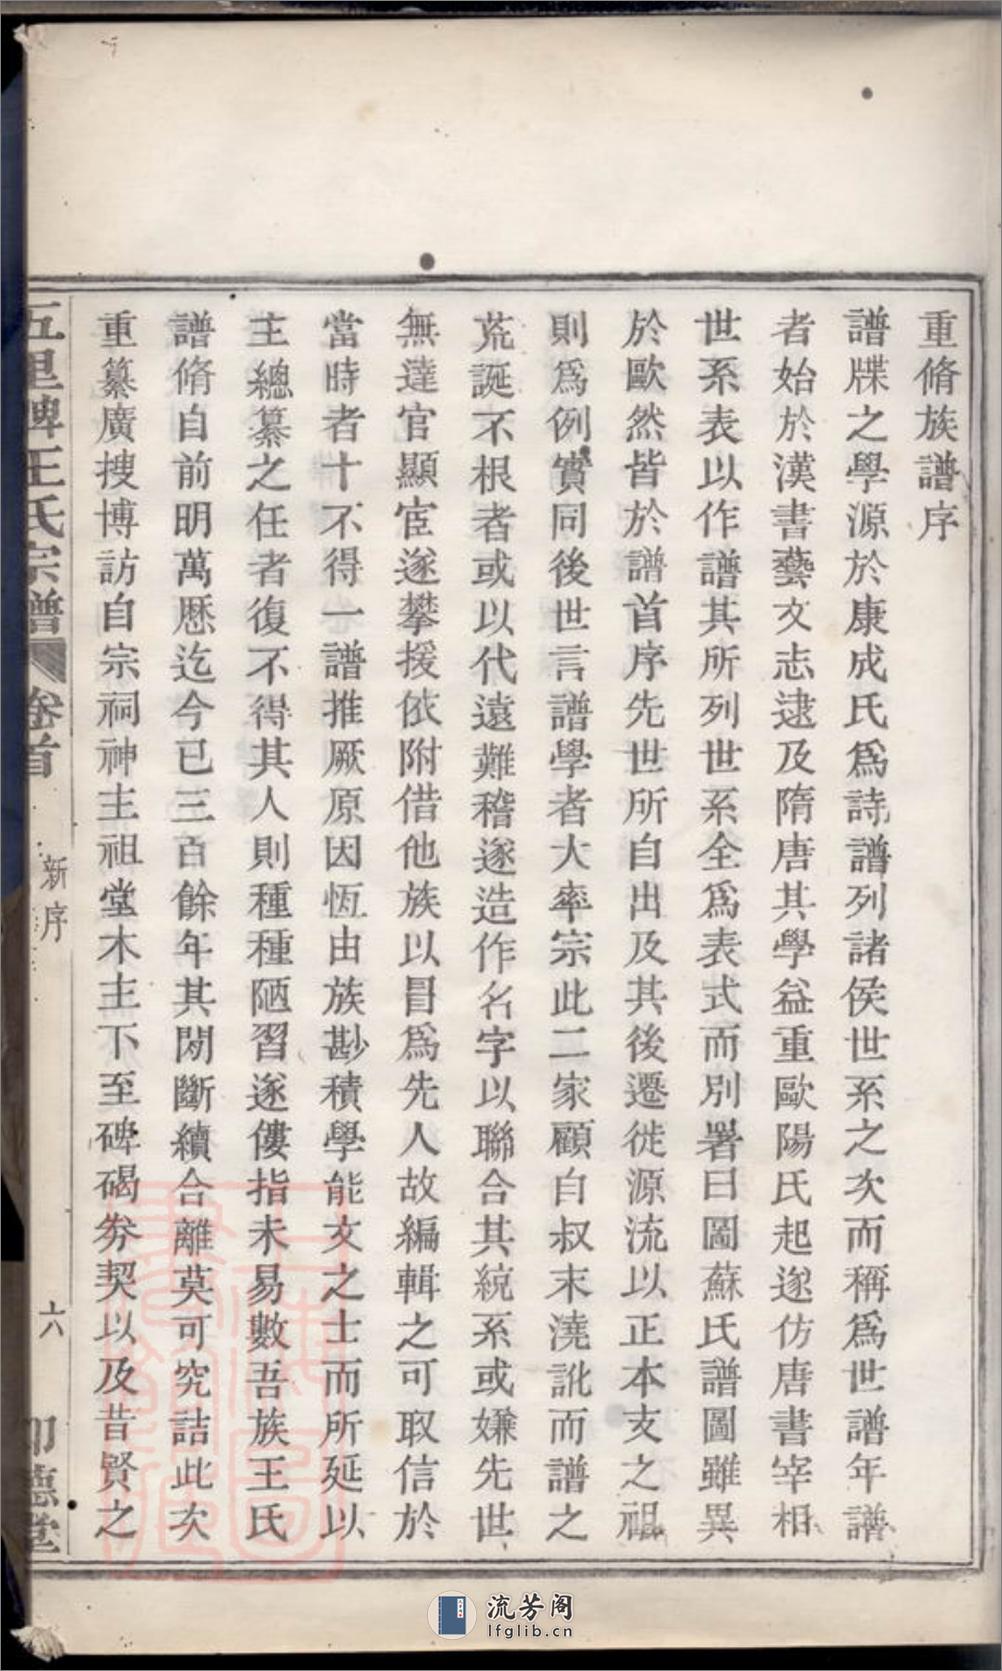 重脩族譜序
譜牒之學源於康成氏爲詩譜列諸侯世系之次而稱爲世譜年譜
者始於漢書藝文志逮及隋唐其學益重歐陽氏起遂仿唐書宰相
世系表以作譜其所列世系全爲表式而別署曰圖蘇氏譜圖雖異
於歐然皆於譜首序先世所自出及其後遷徙源流以正本支之祖
則爲例實同後世言譜學者大率宗此二家顧自叔末澆訛而譜之
荒誕不根者或以代遠難稽遂造作名字以聯合其統系或嫌先世
無達官顯宦遂攀援依附借他族以冒爲先人故編輯之可取信於
當時者十不得一譜推厥原因恆由族尠積學能文之士而所延以
主總纂之任者復不得其人則種種陋習遂僂指未易數吾族王氏
譜脩自前明萬厯迄今已三百餘年其閒斷續合離莫可究詰此次
重纂廣搜博訪自宗祠神主祖堂木主下至碑碣券契以及昔賢之
五里牌王氏宗譜
卷首
新序
六
卽德堂
流芳阁
lfglib.cn